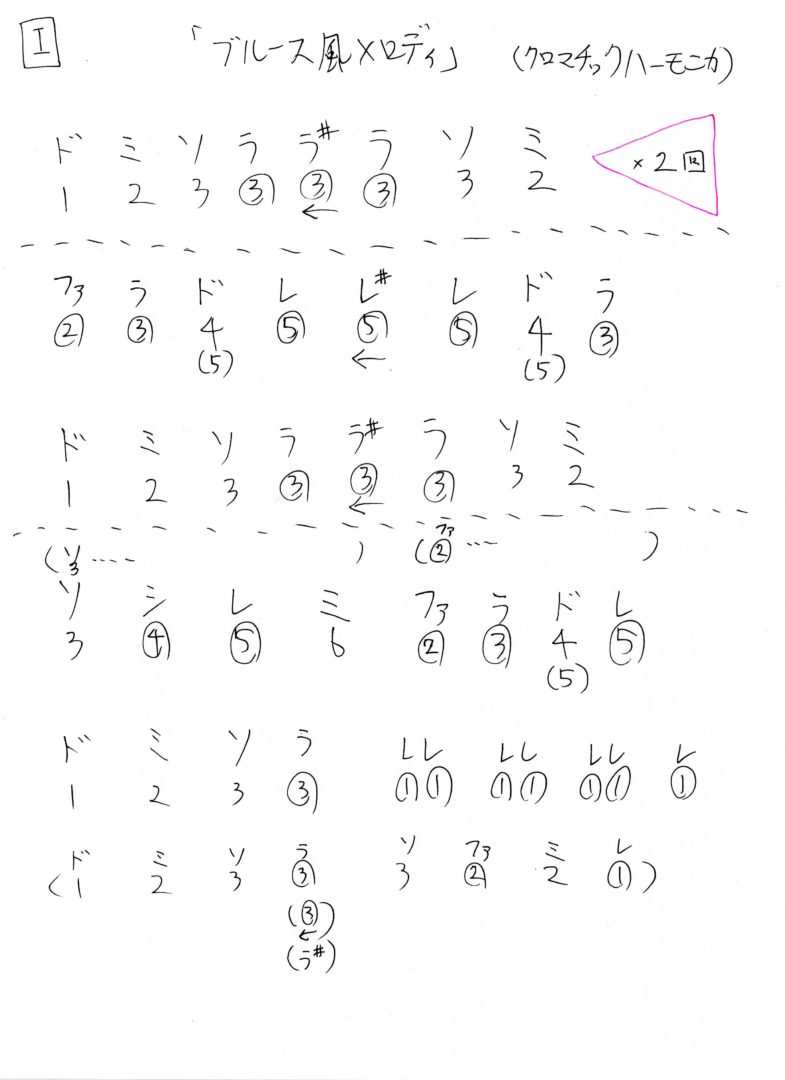 I 「ブルース風メロディ」 (クロマチックハーモニカ)
ド ミ ソ ラ ラ# ラ ソ ミ
1 2 3 ③ ③ ③ 3 2 ×2回
←
ファ ラ ド レ レ# レ ド ラ
② ③ 4 ⑤ ⑤ ⑤ 4 ③
(5) ← (5)
ド ミ ソ ラ ラ# ラ ソ ミ
1 2 3 ③ ③ ③ 3 2
←
(ソ ････ ) (ファ ･･･ )
3 ②
ソ シ レ ミ ファ ラ ド レ
3 ④ ⑤ 6 ② ③ 4 ⑤
(5)
ド ミ ソ ラ レレ レレ レレ レ
1 2 3 ③ ①① ①① ①① ①
(ド ミ ソ ラ ソ ファ ミ レ
1 2 3 ③ 3 ② 2 ①)
(③)
←
(ラ#)